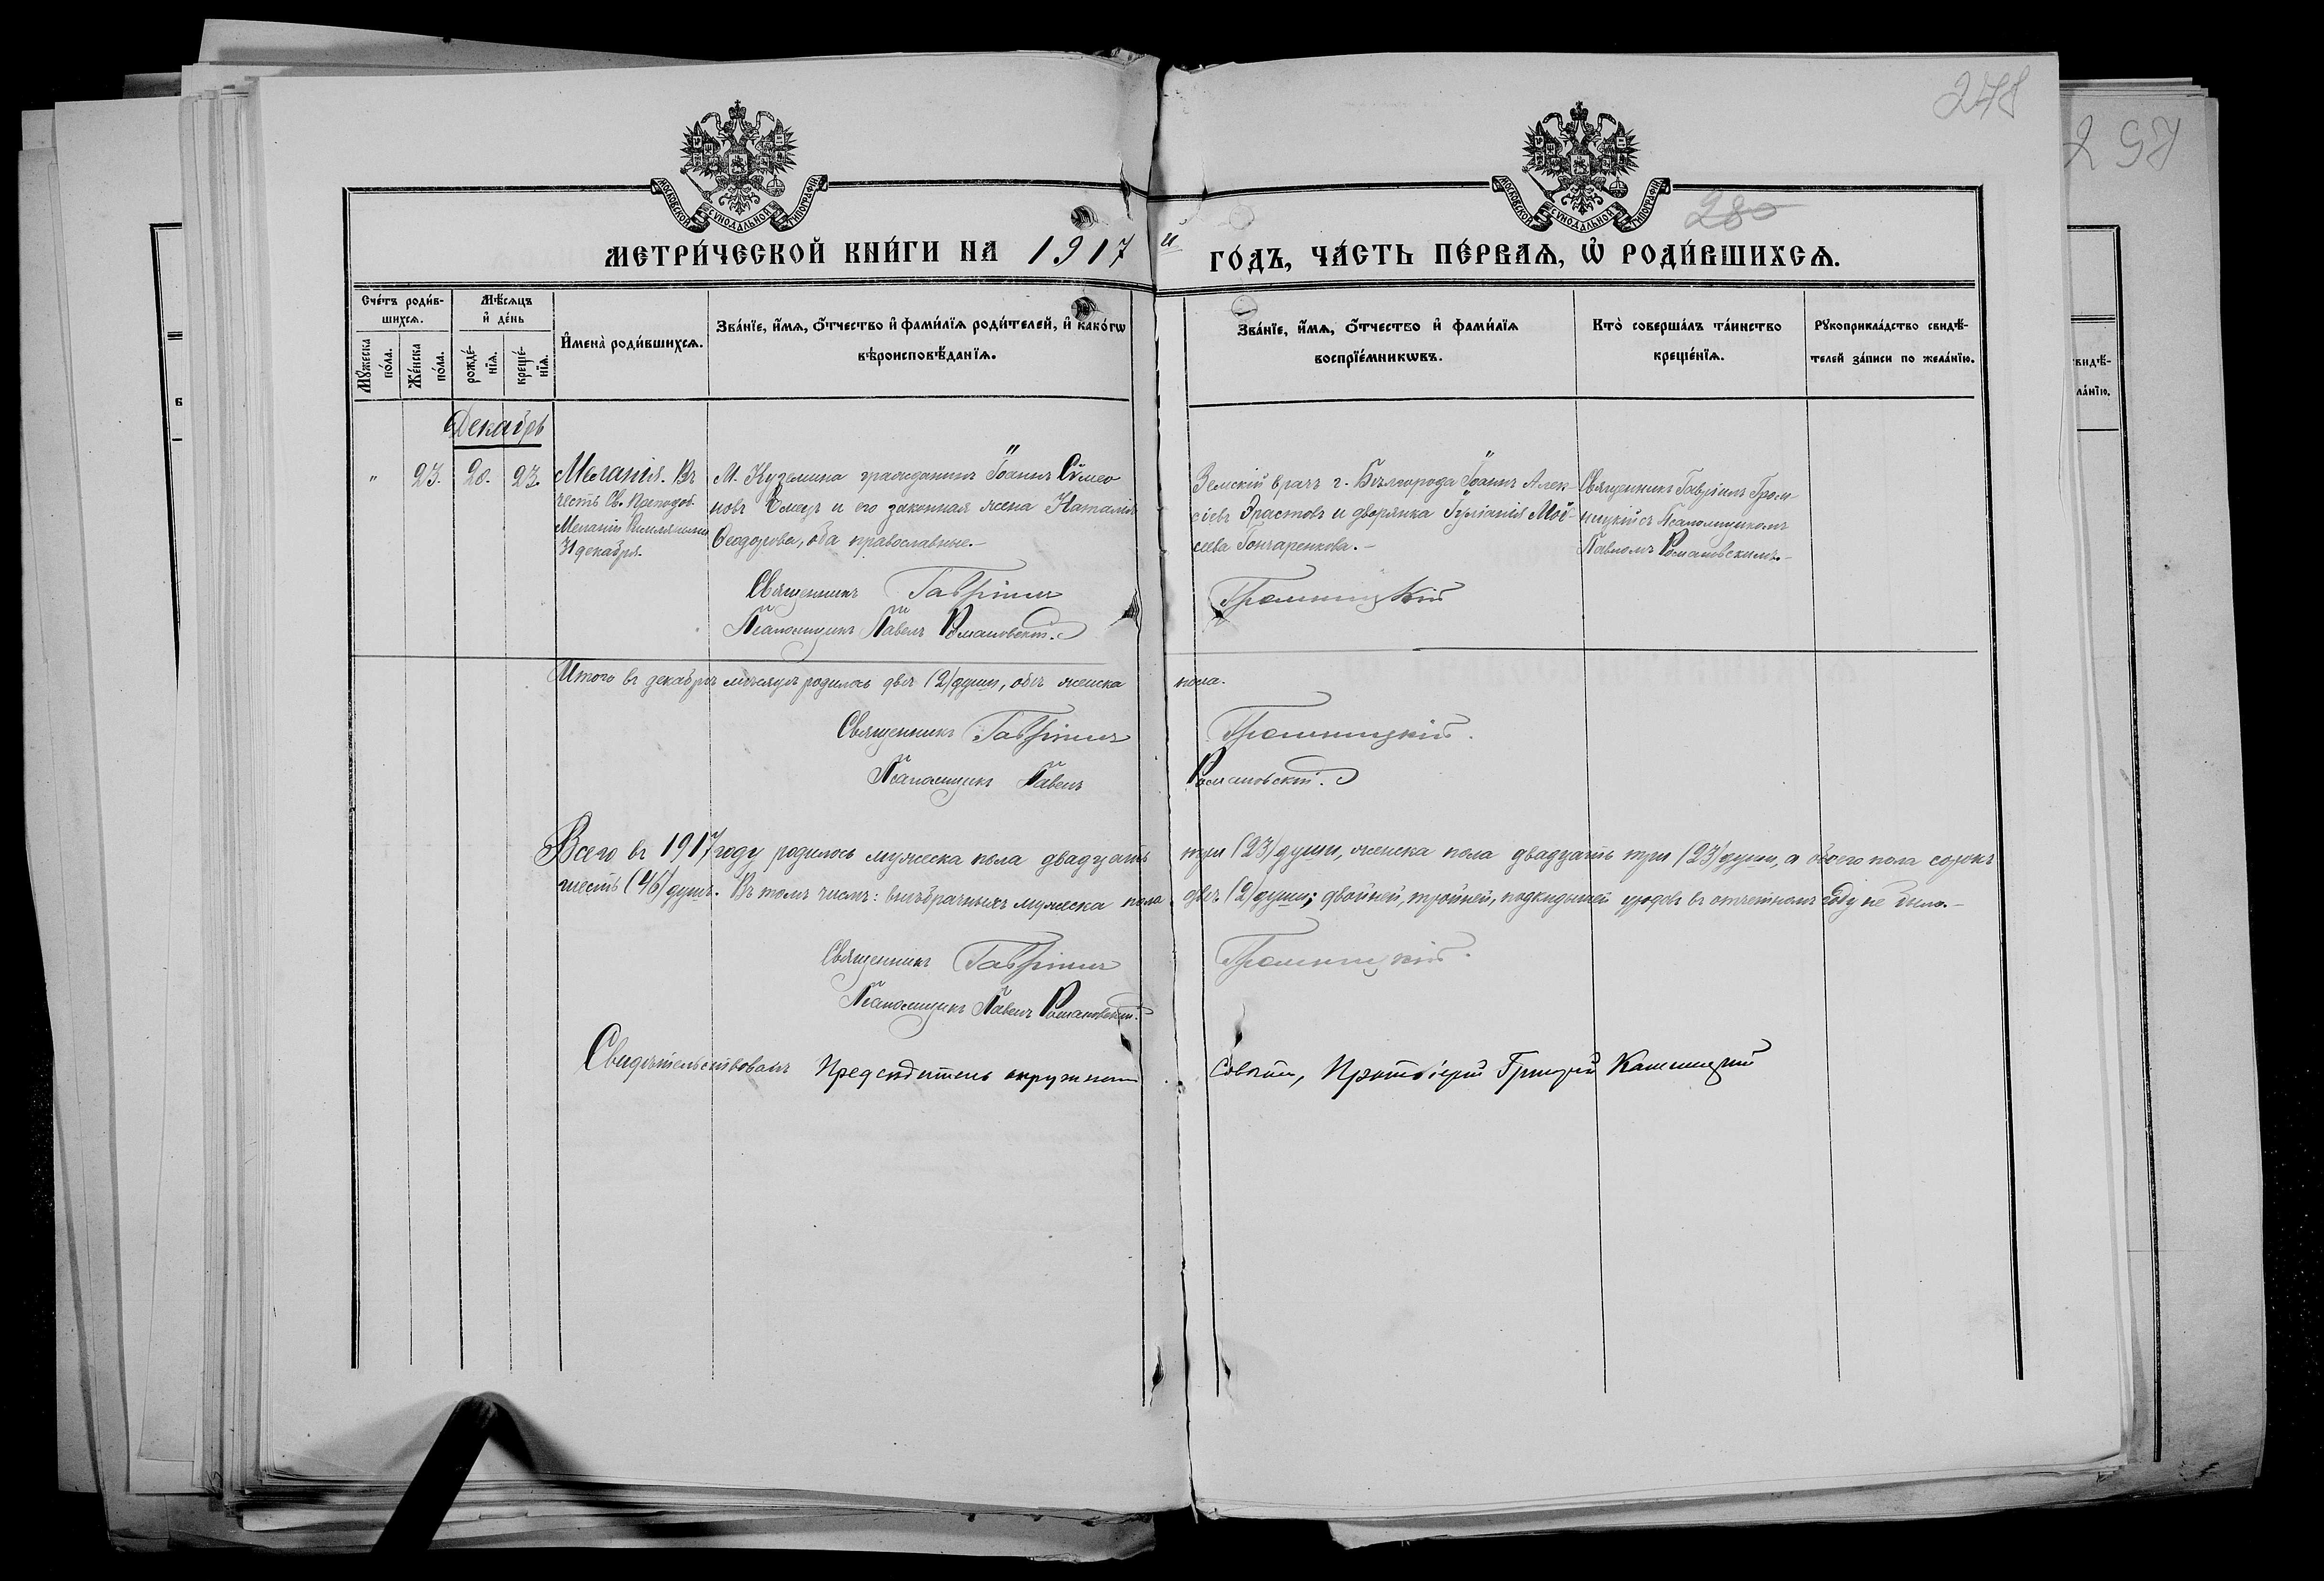 248
297
280
МОСКОВСКОЙ СѴНОДАЛЬНОЙ ТИПОГРАФІИ
МОСКОВСКОЙ СѴНОДАЛЬНОЙ ТИПОГРАФІИ
МЕТРИ́ЧЕСКОЙ КНИ́ГИ НА 1917 й ГО́ДЪ, ЧА́СТЬ ПЕ́РВАѦ, Ѡ҆ РОДИ́ВШИХСѦ.
Сче́тъ роди́в-
шихсѧ.
Мѹ́жеска по́ла.
Же́нска по́ла.
Мѣ́сѧцъ
и҆ де́нь
рожде́-
нїѧ.
креще́-
нїѧ.
И҆мена̀ роди́вшихсѧ.
Зва́нїе, и҆́мѧ, о҆́тчество и҆ фами́лїѧ роди́телей, и҆ како́гѡ
вѣроисповѣ́данїѧ.
Зва́нїе, и҆́мѧ, о҆́тчество и҆ фами́лїѧ
воспрїе́мникѡвъ.
Кто̀ соверша́лъ та́инство
креще́нїѧ.
Рꙋкоприкла́дство свидѣ́-
телей за́писи по жела́нїю.
Декабрь
" 23. 20. 23.
Меланія. Въ
честь Св. Преподоб.
Меланіи Римляныни
31 декабря.
М. Куземина гражданинъ Іоаннъ Сѵмео
новъ Смецъ и его законная жена Наталія
Ѳеодорова, оба православные.-
Земскій врачъ г. Бѣлгорода Іоаннъ Алек-
сіевъ Эрастовъ и дворянка Іуліанія Мой-
сеева Гончаренкова.-
Священникъ Гавріилъ Гром-
ницкій съ Псаломщикомъ
Павломъ Романовскимъ.-
Священникъ Гавріилъ Громницкій
Псаломщикъ Павелъ Романовскій.
Итого въ декабрѣ мѣсяцѣ родилось двѣ (2) души, обѣ женска пола.
Священникъ Гавріилъ Громницкій.
Псаломщикъ Павелъ Романовскій.
Всего въ 1917 году родилось мужеска пола двадцать три (23) души, женска пола двадцать три (23) души, а обоего пола сорокъ
шесть (46) душъ. Въ томъ числѣ: внѣбрачныхъ мужеска пола двѣ (2) души; двойней, тройней, подкидышей уродовъ въ отчетномъ году не было.-
Священникъ Гавріилъ Громницкій.
Псаломщикъ Павелъ Романовскій.
Свидѣтельствовалъ Предсѣдатель окружного Совѣта, Протоіерей Григорій